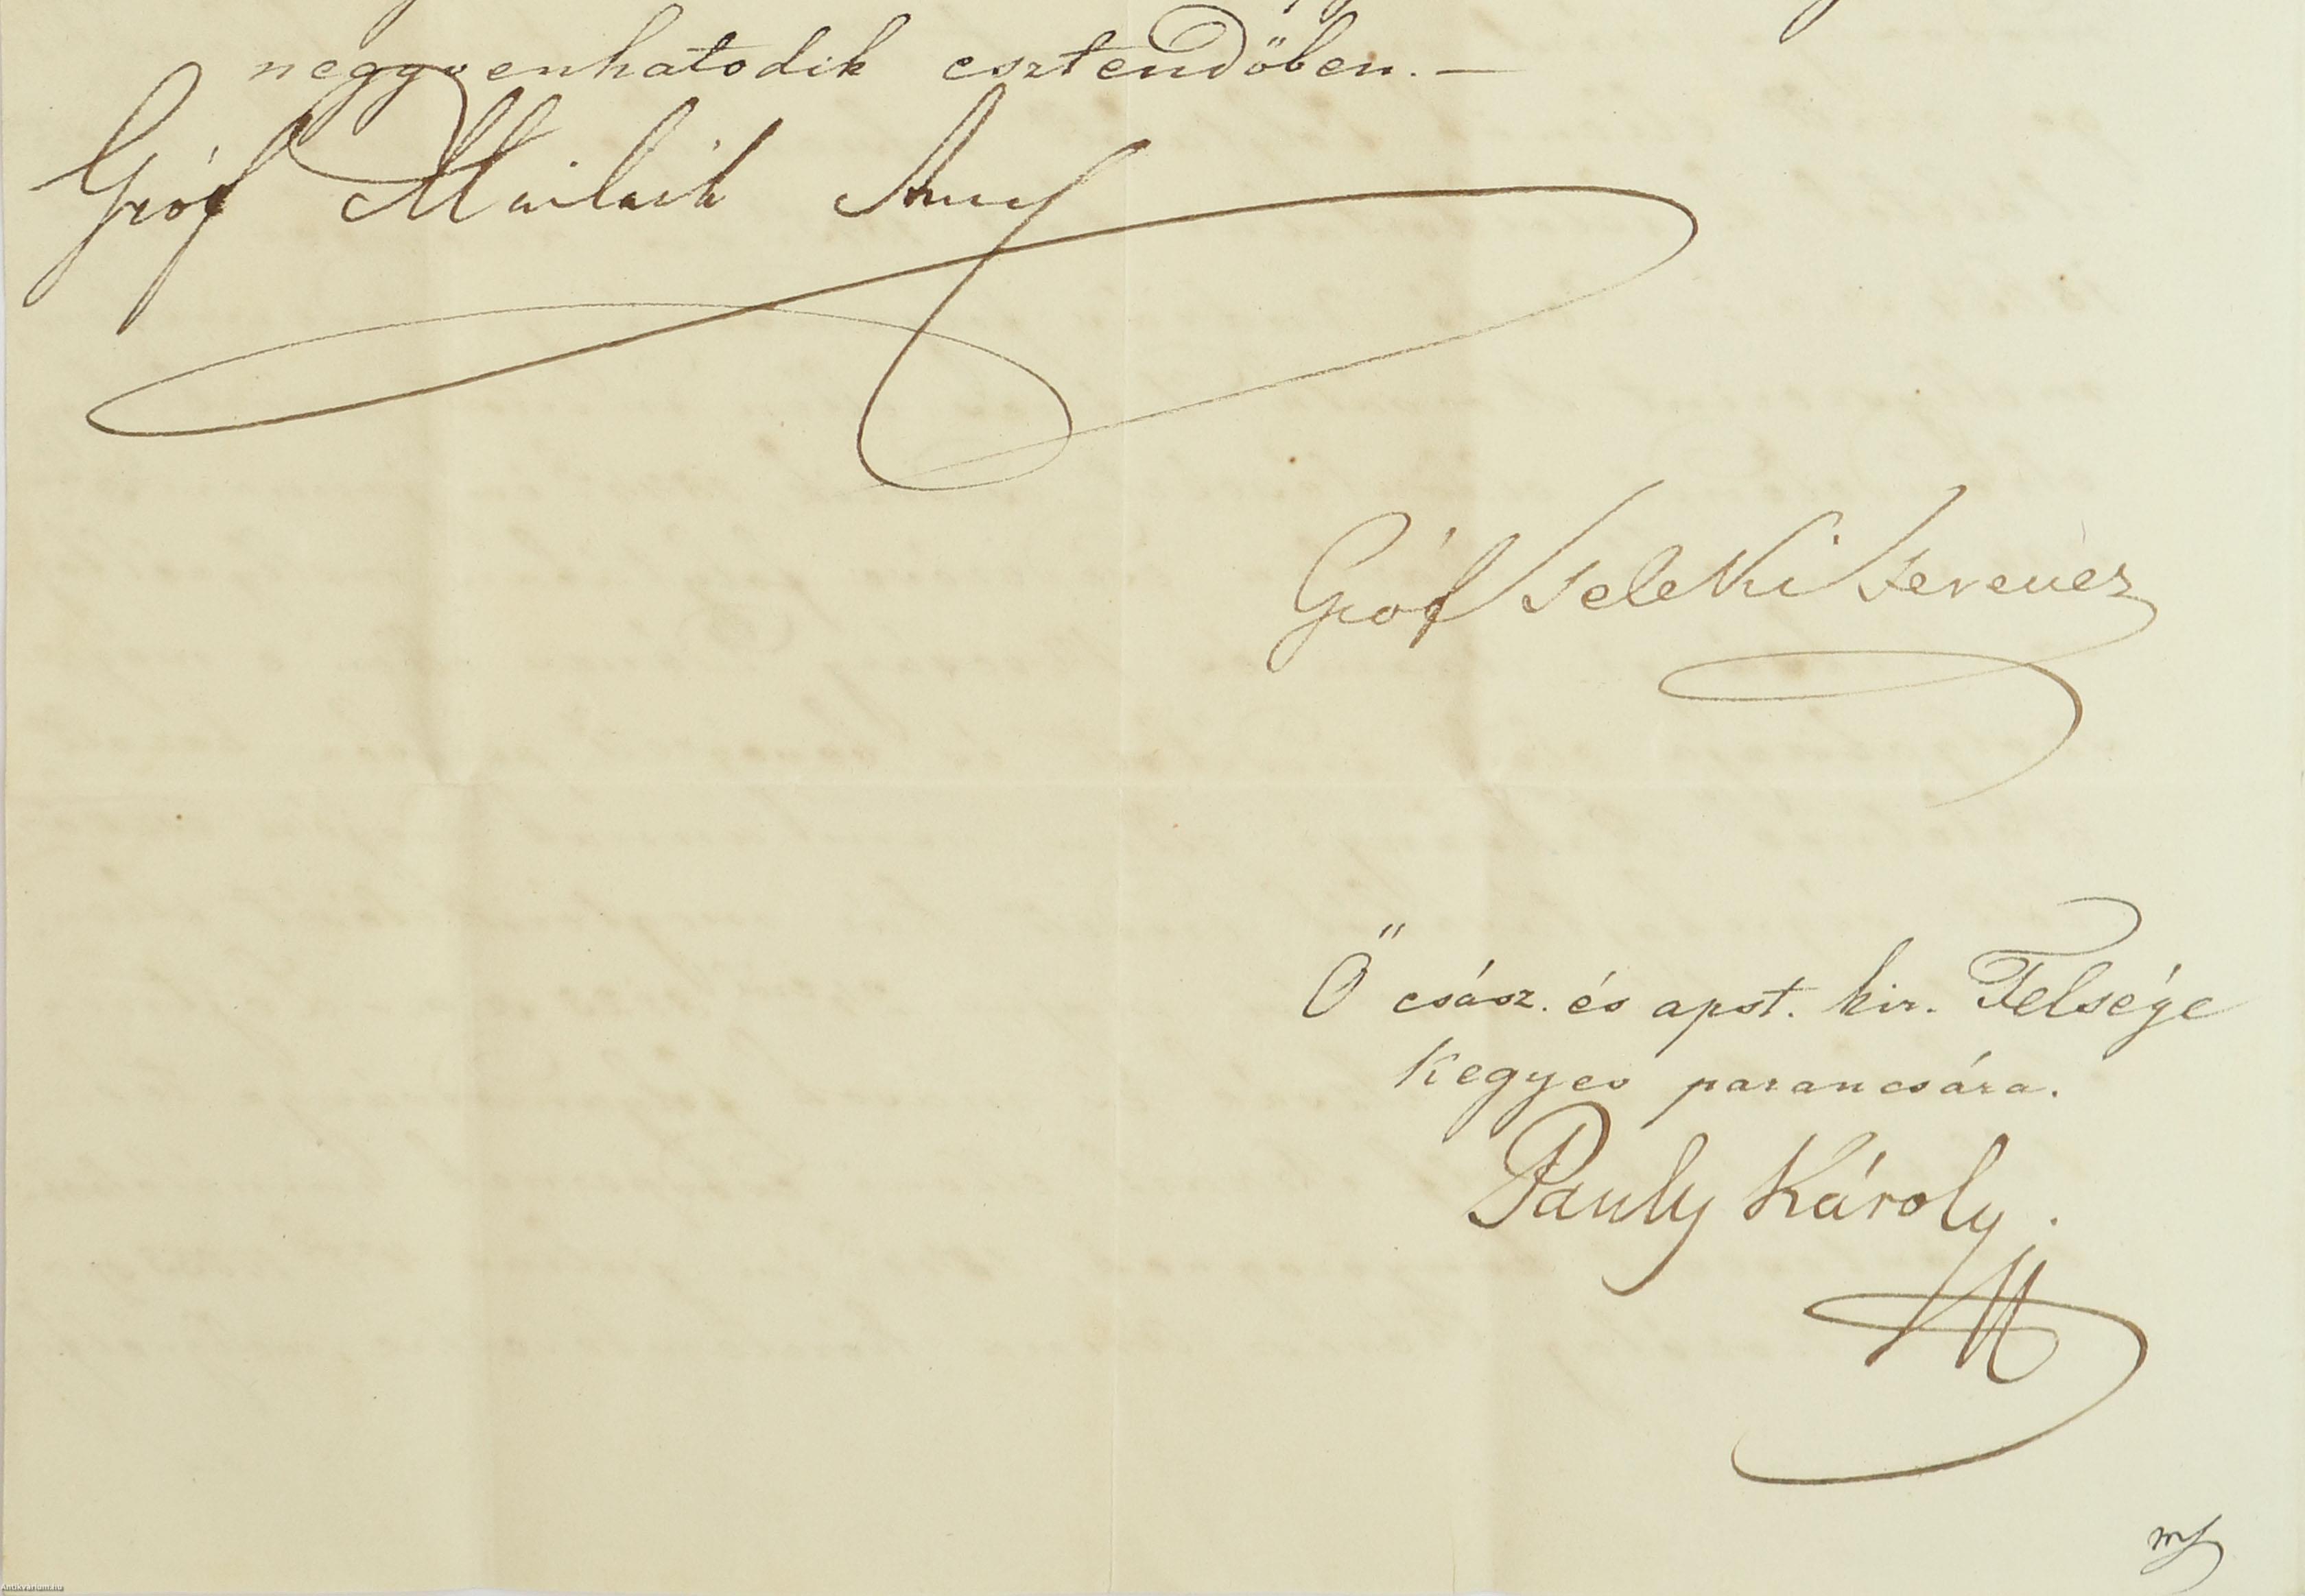 neggyvenhatodik esztendőben. —
Gróf Mailáth
Gróf Teleki Ferencz
Ő csász. és apst. kir. Felsége
Kegyes parancsára.
Pauly Károly.
Antikvarium.hu